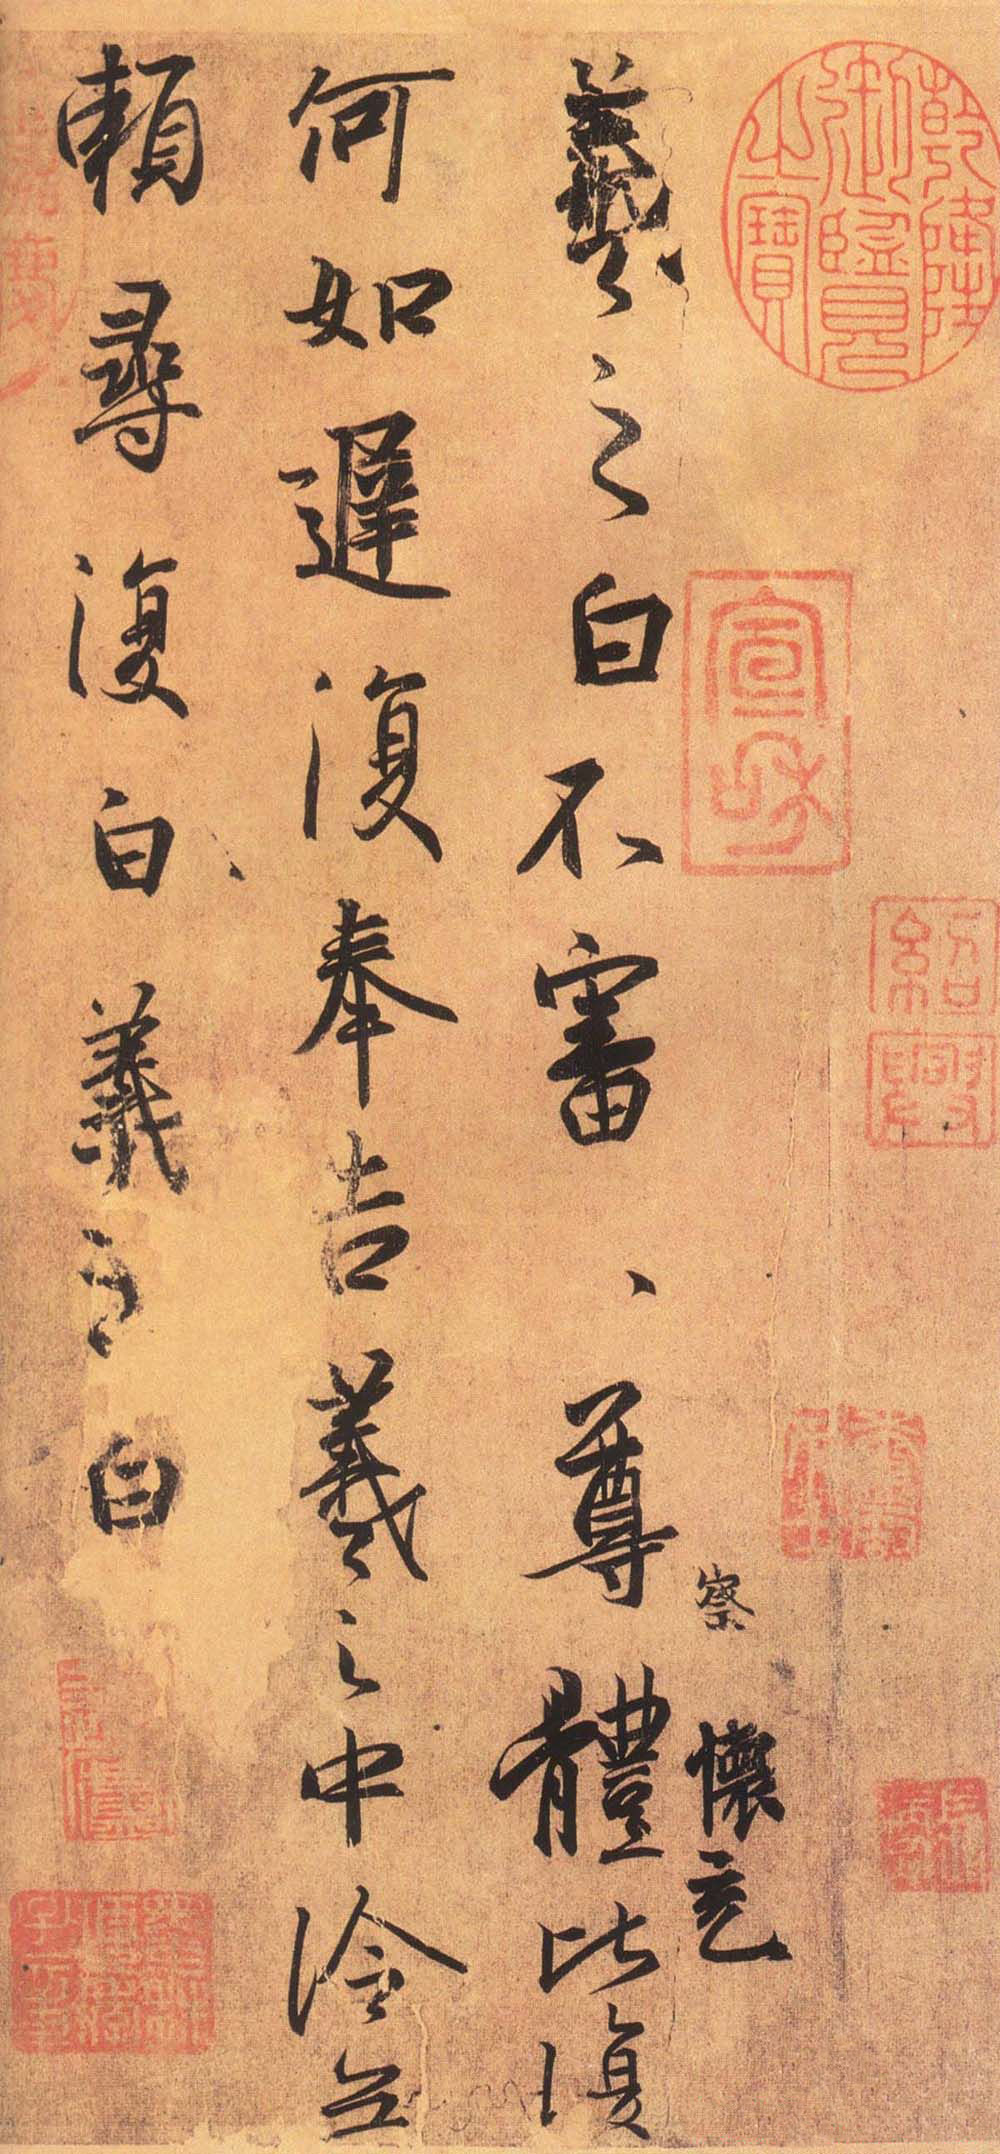 乾隆御覽之寶
宣和
紹興
察
懷充
羲之白不審、尊體比復
何如遲復奉告羲之中冷無
賴尋復白羲之白